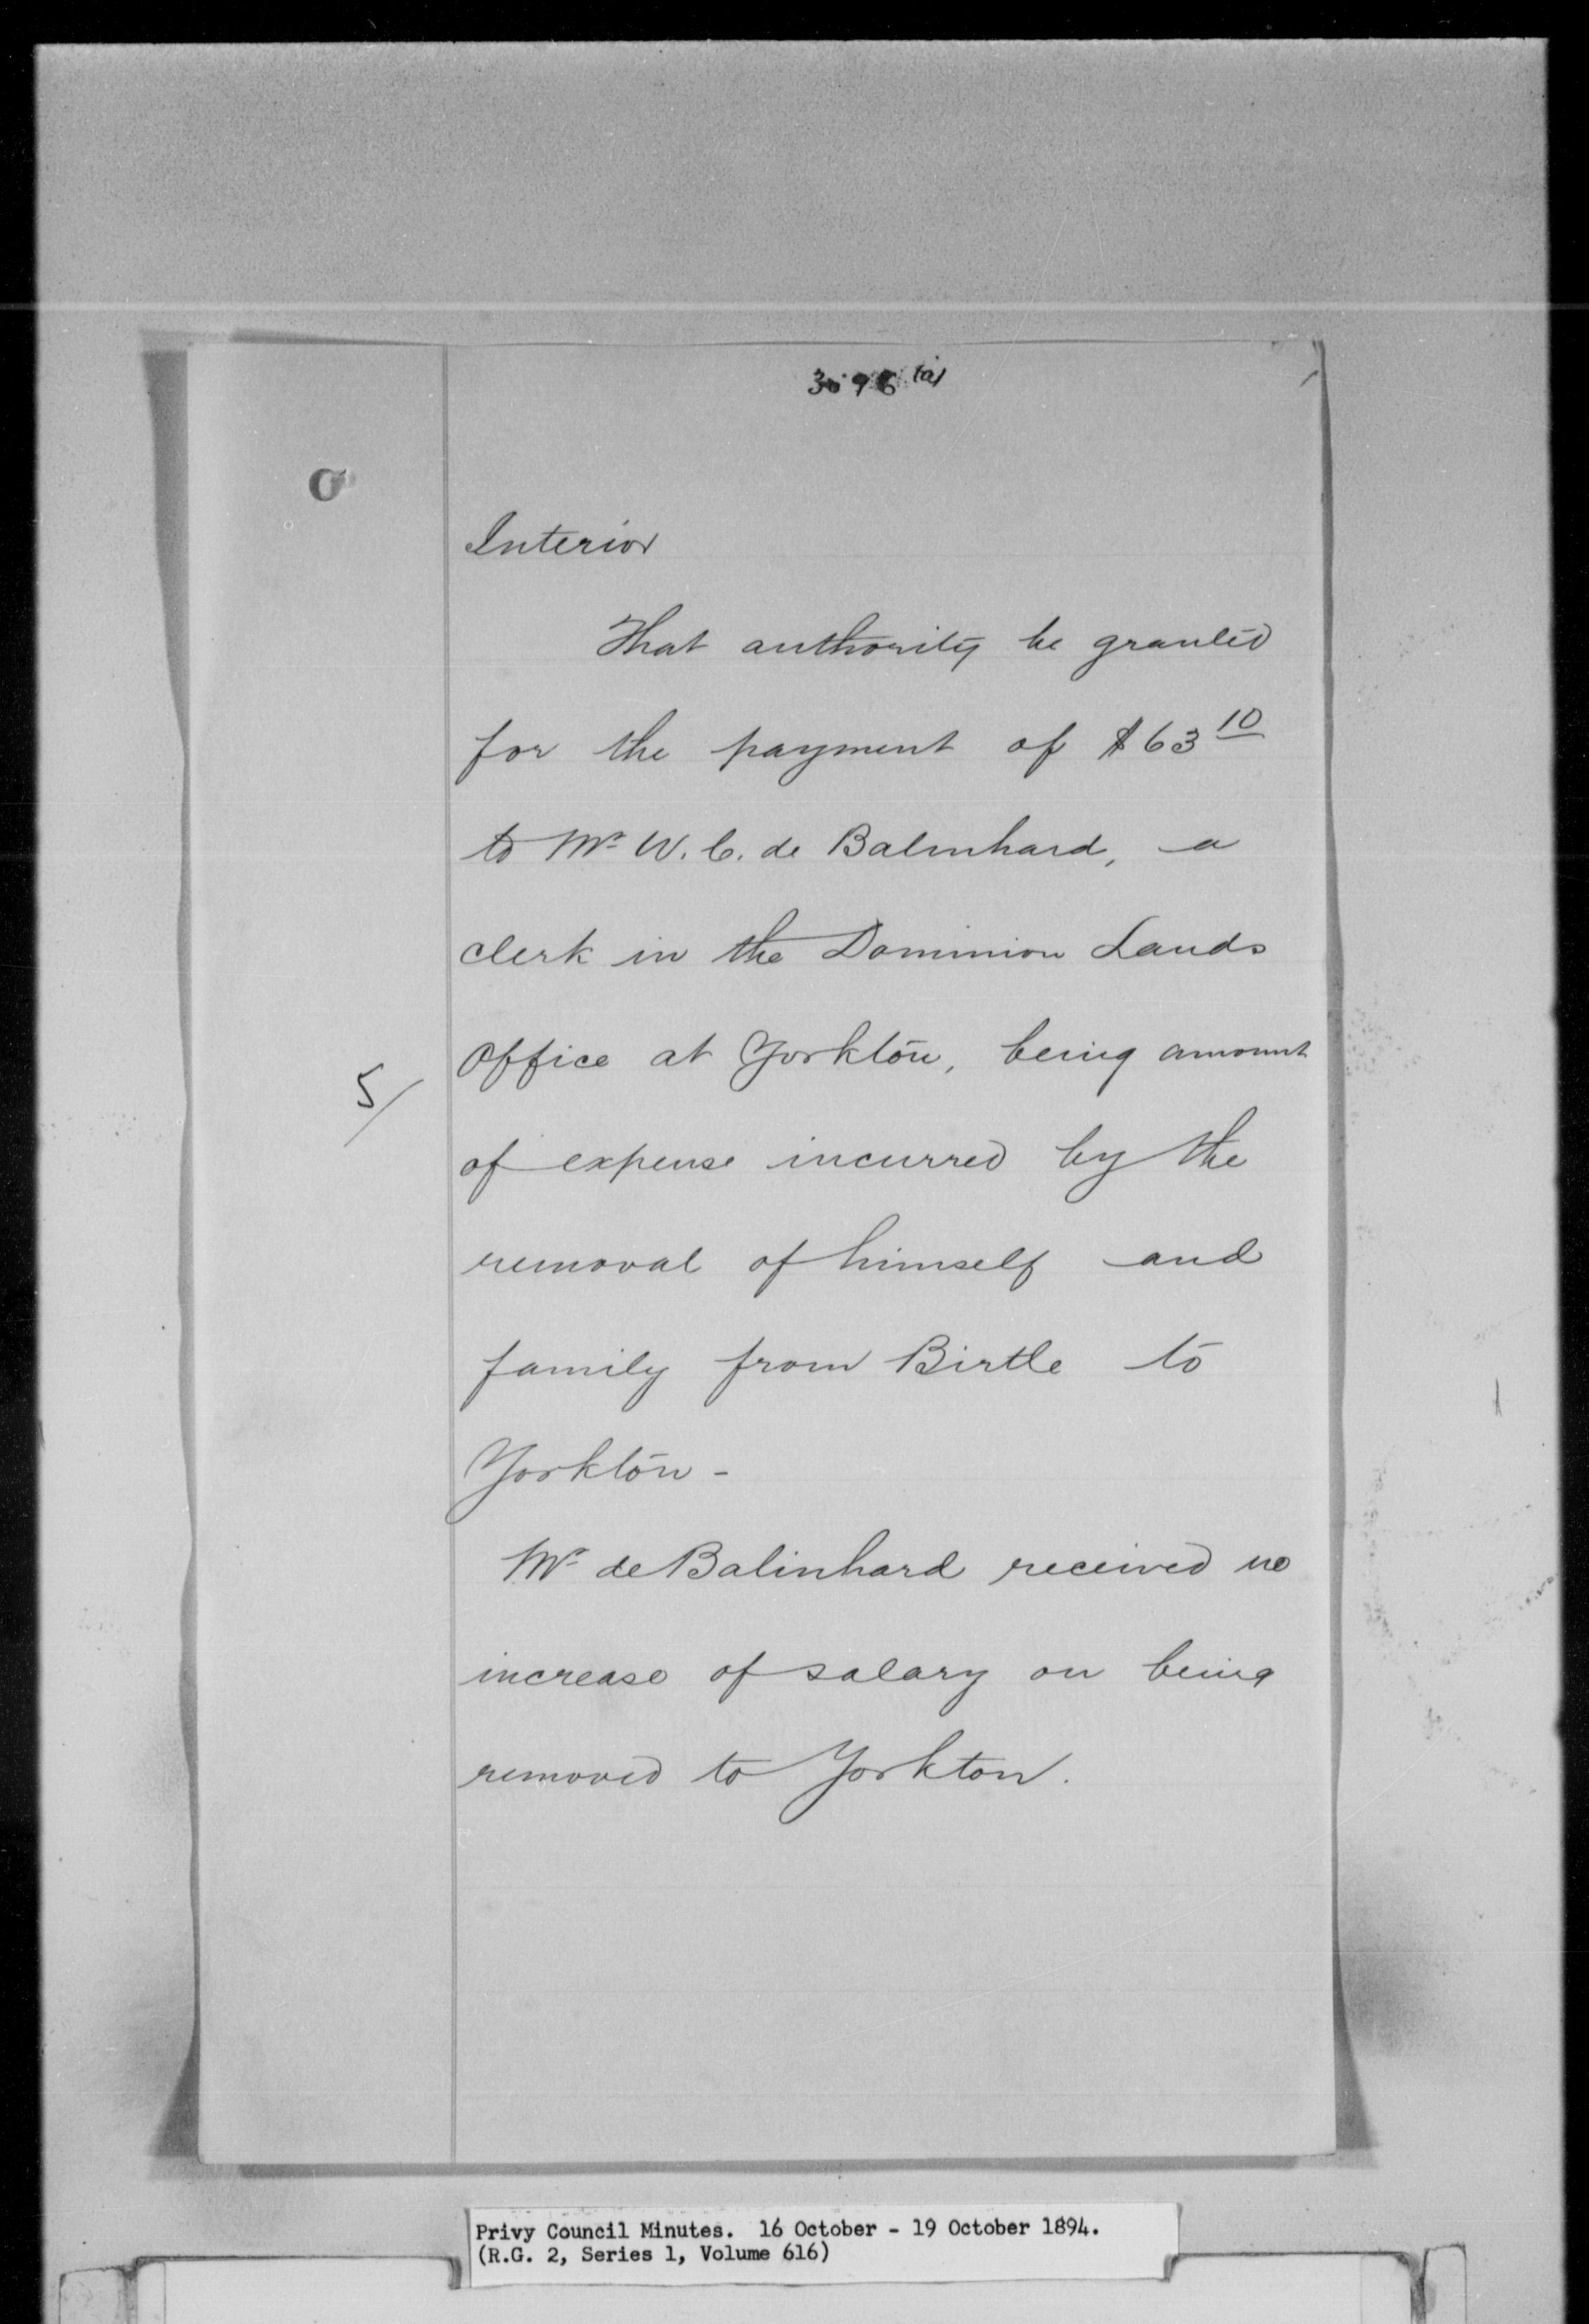 3096 (a)
O
Interior
That authority be granted
for the payment of $63 10
to Mr W. C. de Balinhard, a
clerk in the Dominion Lands
Office at Yorkton, being amount
5/
of expense incurred by the
removal of himself and
family from Birtle to
Yorkton -
Mr de Balinhard received no
increase of salary on being
removed to Yorkton.
Privy Council Minutes. 16 October - 19 October 1894.
(R.G. 2, Series 1, Volume 616)